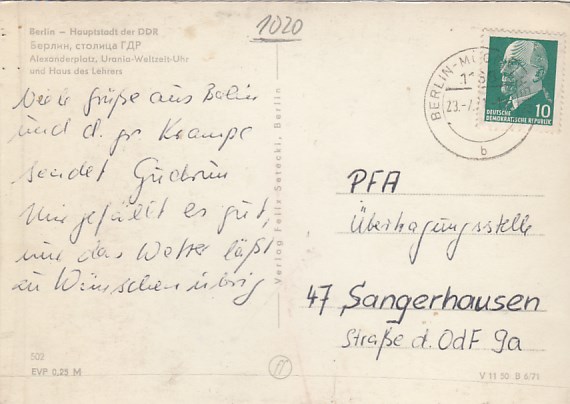 1020
Berlin – Hauptstadt der DDR
Берлин, столица ГДР
Alexanderplatz, Urania-Weltzeit-Uhr
und Haus des Lehrers
Viele Grüße aus Berlin
und d. gr Krampe
sendet Gudrun
Mir gefällt es gut,
nur das Wetter läßt
zu Wünschen übrig
502
EVP 0,25 M
Verlag Felix Setecki, Berlin
BERLIN-M
23.-7.
b
10
DEUTSCHE
DEMOKRATISCHE REPUBLIK
PFA
Übertragungsstelle
47 Sangerhausen
Straße d. OdF 9a
V 11 50 B 6/71